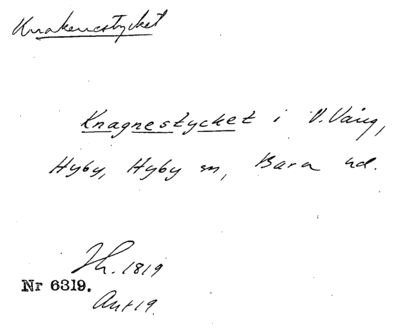 Knakenstycket
Knagnestycket i V. Väng,
Hyby, Hyby sn, Bara hd.
Jh. 1819
Nr 6319.
Akt 19.